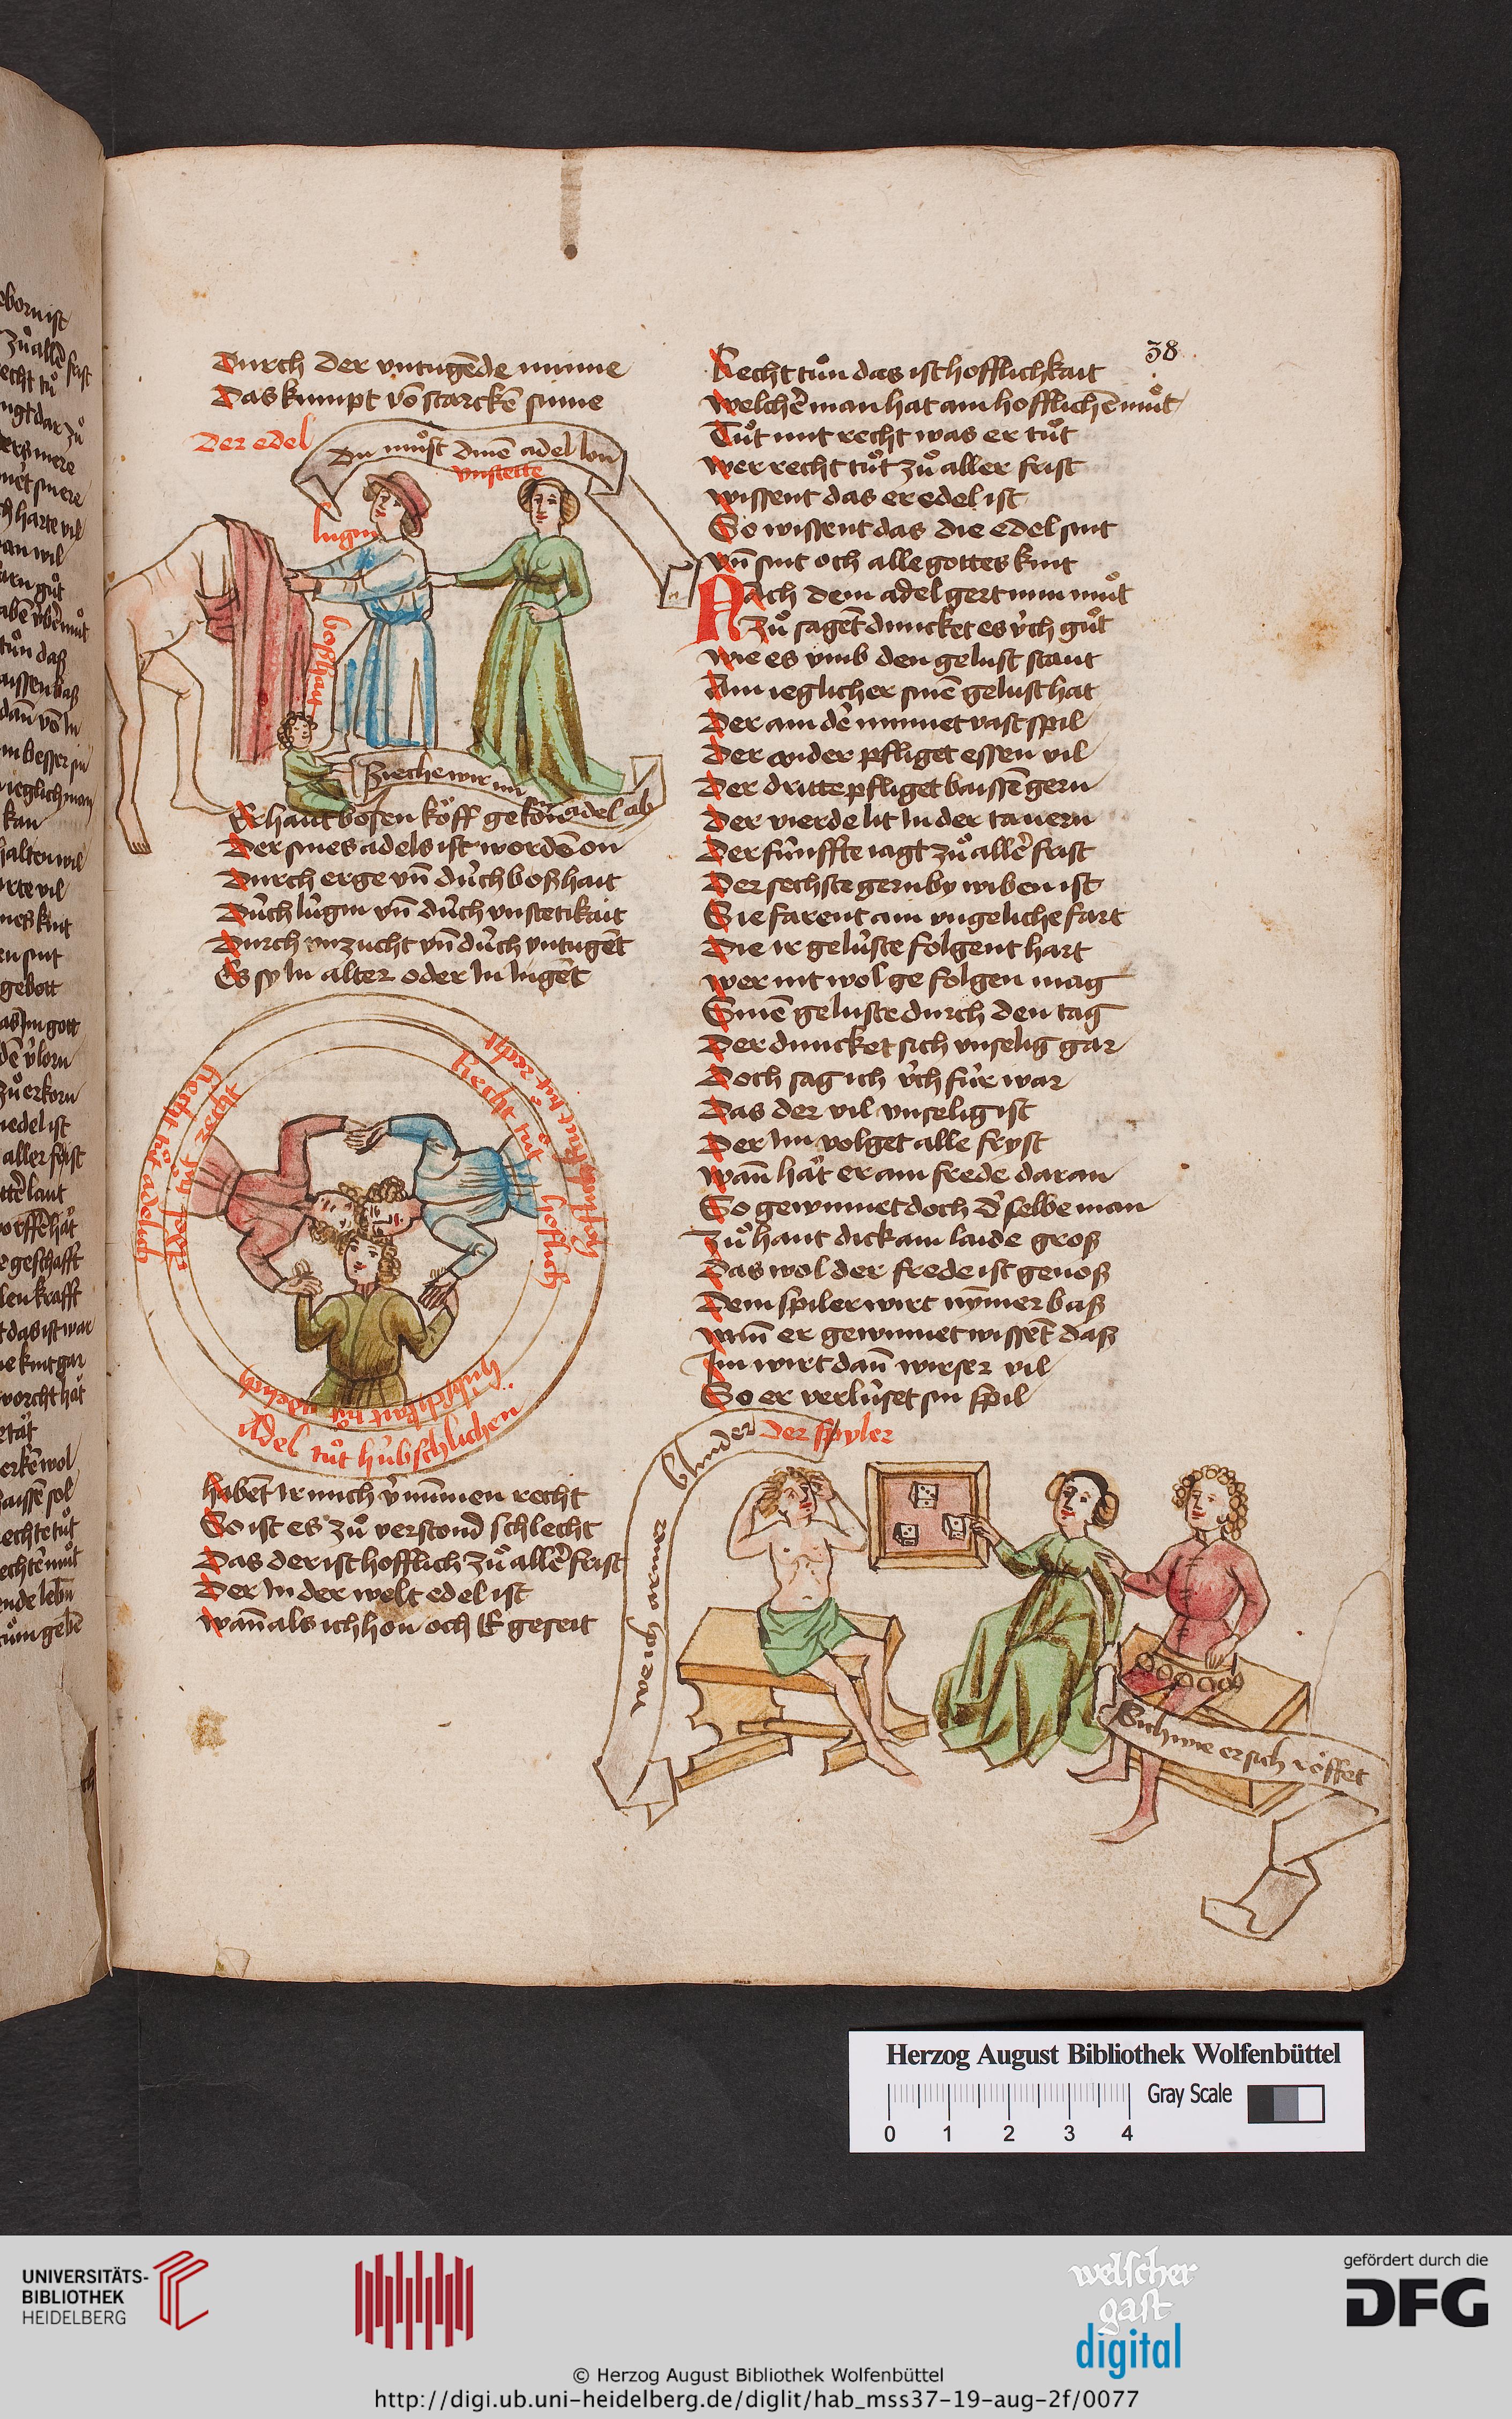 38
Durch der vntugēde minne
Das kumpt vō starckē sinne
Der edel
Du muͦst dinē adel lon
vnstette
lugin
boßhait
Zieche wir im
adel ab
Er haut bosen köff gekön
Der sines adels ist wordē on
Durch erge vn̄ dúch boßhait
Dúch lúgin vn̄ dúch vnstetikait
Durch vnzucht vn̄ dúch vntugēt
Es sy in alter oder in iugēt
Recht tuͦt adelich
Recht tuͦt hoflich
Adel tuͦt húbschlichen
habēt ir mich v̓nūmen recht
So ist es zuͦ verstond schlecht
Das der ist hofflich zuͦ allē frist
Der in der welt edel ist
wan̄ als ich hon och E geseit
Recht tuͦn das ist hofflichkait
welchē man hat ain hofflichē muͦt
Tuͦt mit recht was er tuͦt
wer recht tuͦt zuͦ aller frist
wissent das er edel ist
So wissent das die edel sint
vn̄ sint och alle gottes kint
Nach dem adel gert min muͦt
Zuͦ sagēt duncket es v́ch guͦt
wie es vmb den gelust staut
Ain ieglicher sinē gelust hat
Der ain dē minnet vast spil
Der ander pfliget essen vil
Der dritte pfliget baissē gern
Der vierde lit in der tauern
Der fúnffte iagt zuͦ allē frist
Der sechste gern by wiben ist
Sie farent ain vngeliche fart
Die ir gelúste folgent hart
wer nit wol gefolgen mag
Sinē geluste durch den tag
Der duncket sich vnselig gar
Doch sag ich v́ch fúr war
Das der vil vnselig ist
Der im volget alle fryst
wan̄ hät er ain frede daran
So gewinnet doch d̓ selbe man
Zuͦ hant dick ain laide groß
Das wol der frede ist genoß
Dem spiler wirt nȳmer baß
wan̄ er gewinnet wissēt daß
Im wirt dan̄ wirser vil
So er verlúset sin spil
Der spyler
blinder
Sich wie er sich röffet
Herzog August Bibliothek Wolfenbüttel
0 1 2 3 4
Gray Scale
UNIVERSITÄTS-
BIBLIOTHEK
HEIDELBERG
welscher
gast
digital
gefördert durch die
DFG
© Herzog August Bibliothek Wolfenbüttel
http://digi.ub.uni-heidelberg.de/diglit/hab_mss37-19-aug-2f/0077